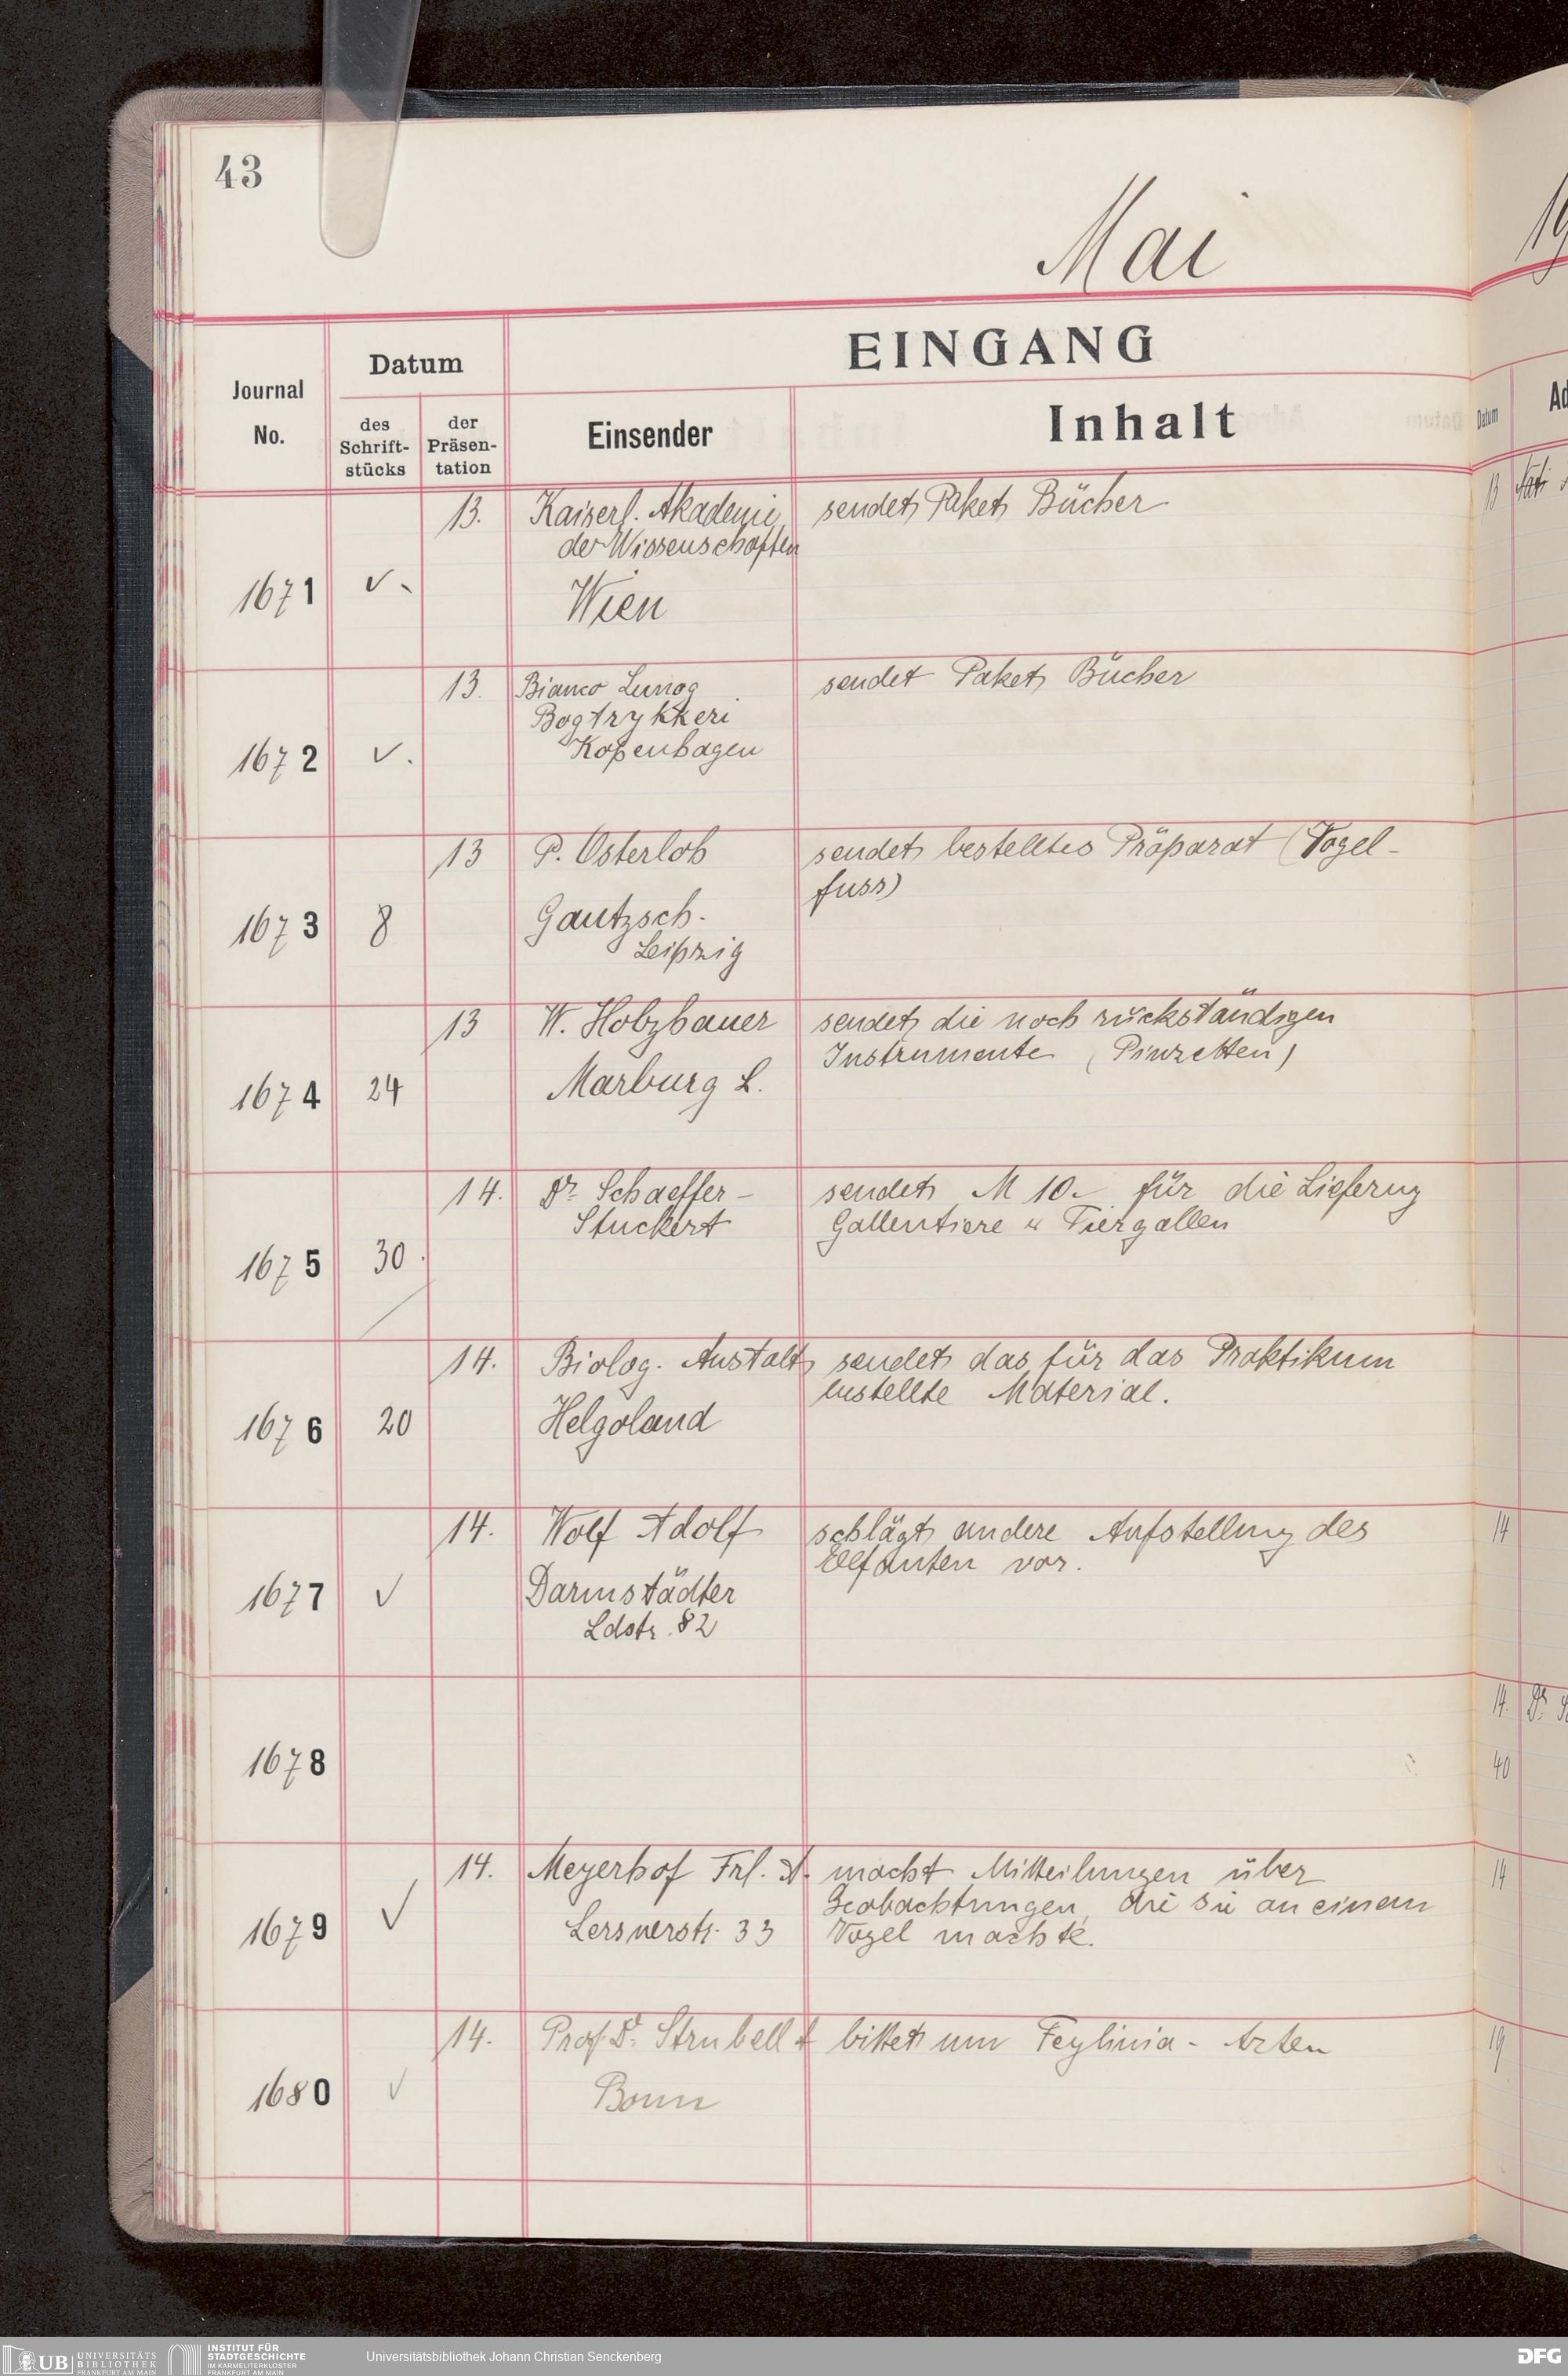 43
Mai
19
EINGANG
Journal
No.
Datum
des
Schrift-
stücks
der
Präsen-
tation
Einsender
Inhalt
Datum
Ad
1671
✓
13.
Kaiserl. Akademie
der Wissenschaften
Wien
sendet Paket Bücher
13
1672
✓.
13.
Bianco Lunog
Bogtrykkeri
Kopenhagen
sendet Paket Bücher
1673
8
13
P. Osterloh
Gautzsch.
Leipzig
sendet bestelltes Präparat (Vogel-
fuss)
1674
24
13
W. Holzhauer
Marburg L.
sendet die noch rückständigen
Instrumente (Pinzetten)
1675
30.
14.
Dr. Schaeffer-
Stuckert
sendet M 10.- für die Lieferung
Gallentiere u Tiergallen
1676
20
14.
Biolog. Anstalt
Helgoland
sendet das für das Praktikum
bestellte Material.
1677
✓
14.
Wolf Adolf
Darmstädter
Ldstr. 82
schlägt andere Aufstellung des
Elefanten vor.
14
1678
14.
Dr.
40
1679
✓
14.
Meyerhof Frl. A.
Lersnerstr. 33
macht Mitteilungen über
Beobachtungen, die sie an einem
Vogel machte.
14
1680
✓
14.
Prof Dr. Strubell
Bonn
bittet um Feylinia-Arten
19
UB
UNIVERSITÄTS
BIBLIOTHEK
FRANKFURT AM MAIN
INSTITUT FÜR
STADTGESCHICHTE
IM KARMELITERKLOSTER
FRANKFURT AM MAIN
Universitätsbibliothek Johann Christian Senckenberg
DFG